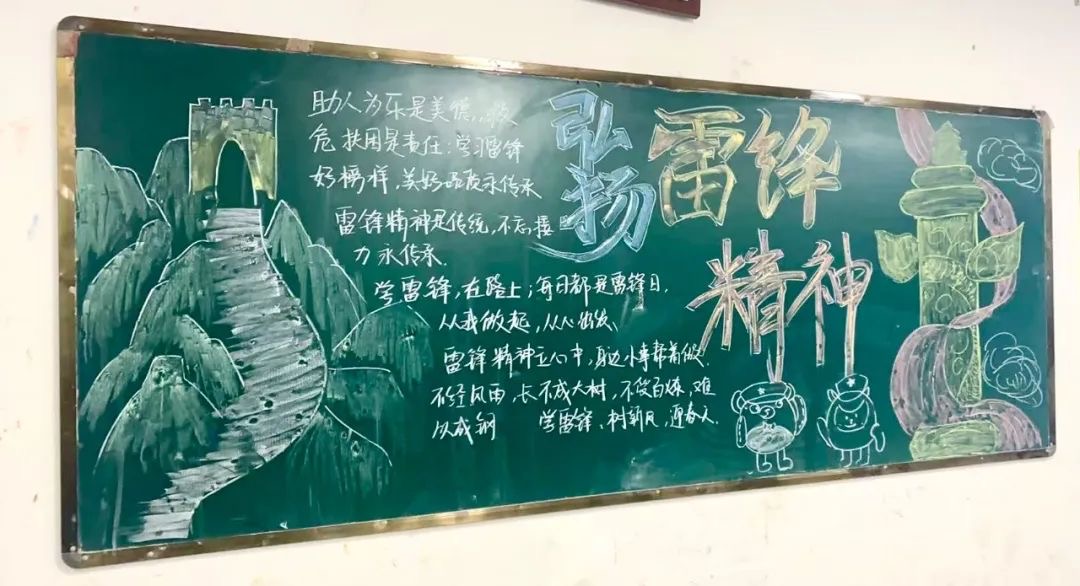 弘扬
雷锋
精神
助人为乐是美德,救
危扶困是责任:学习雷锋
好榜样,美好品度永传承
雷锋精神是传统,不忘接
力永传承.
学雷锋,在路上;每日都是雷锋日,
从我做起,从心出发、
雷锋精神立心中,身边小事帮着做.
不经风雨,长不成大树,不受百炼,难
以成钢 学雷锋、树新风,迎春天.